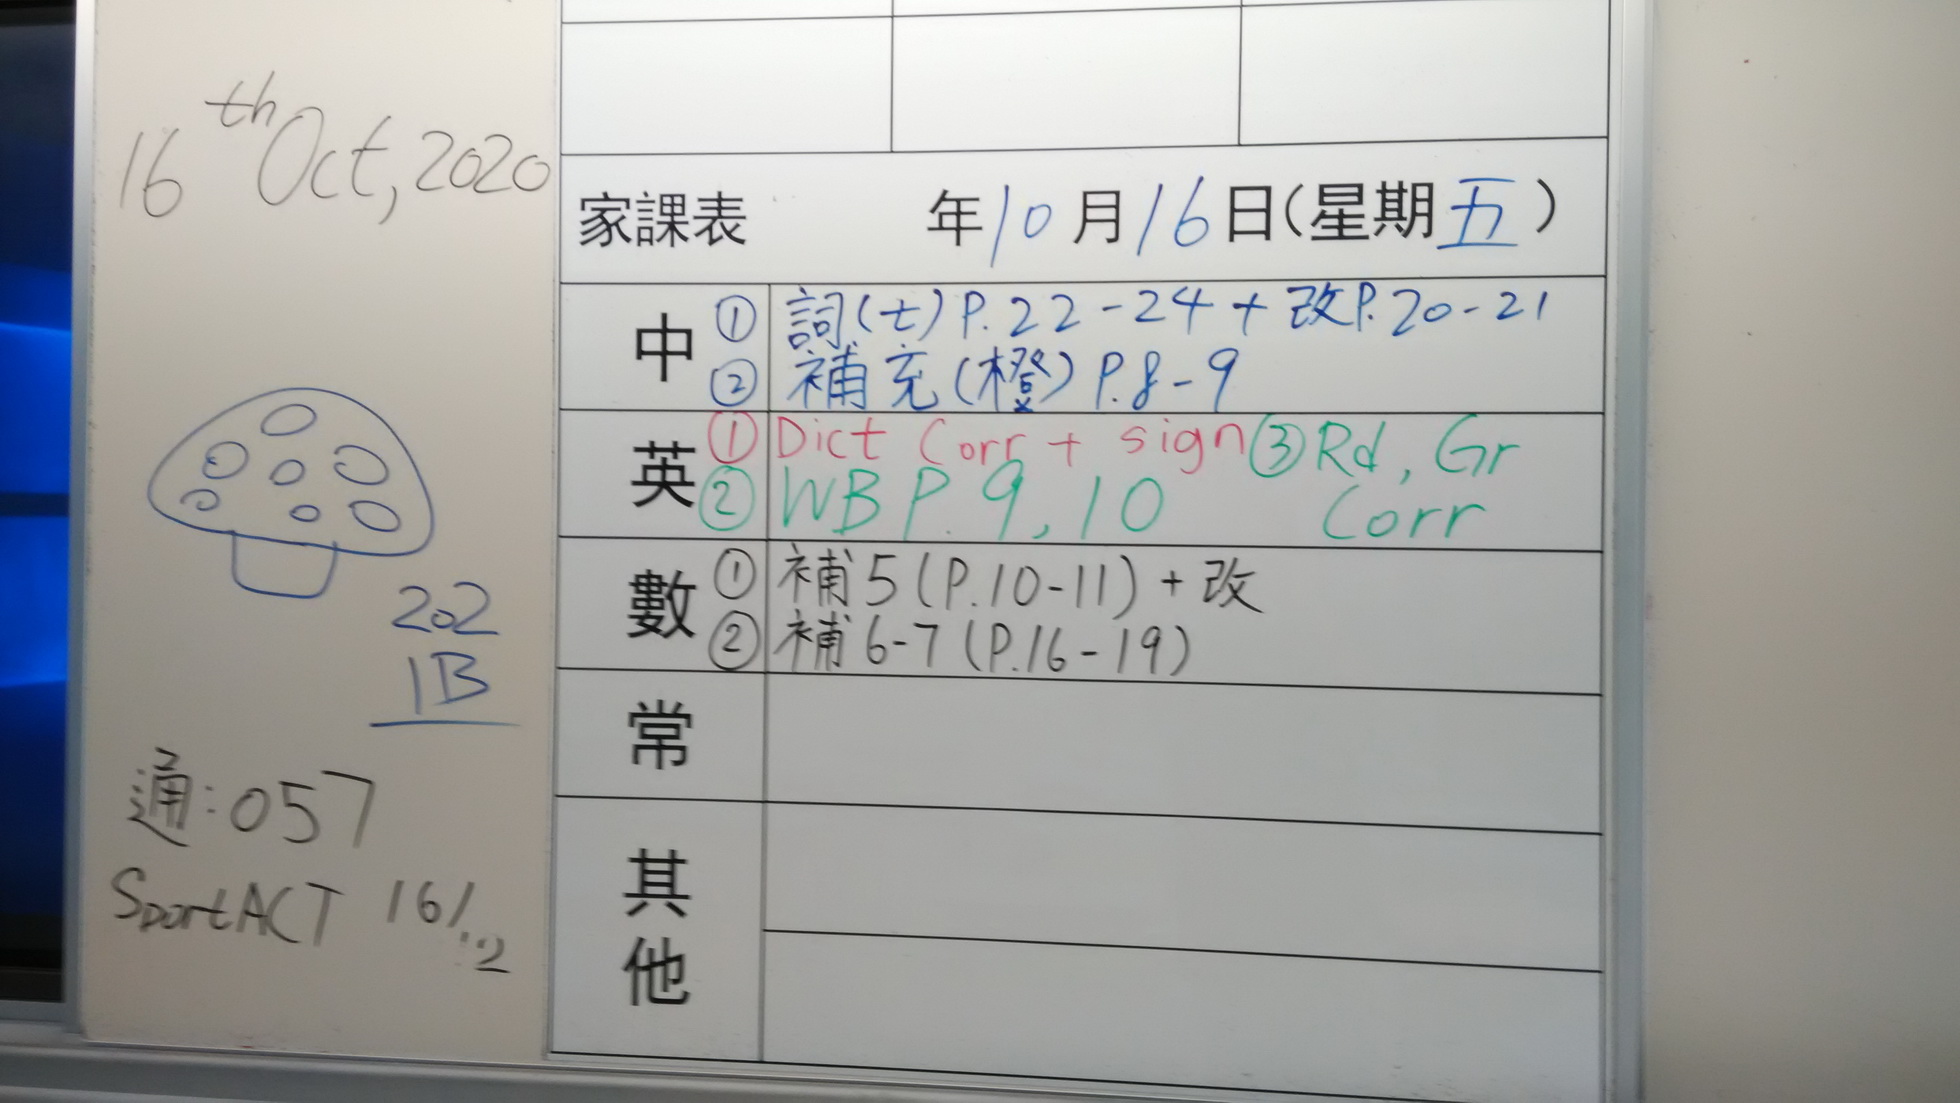 16th Oct, 2020
202
1B
通:057
SportACT 16/12
家課表 年10月16日(星期五)
中 ① 詞(七)P.22-24+改P.20-21
② 補充(橙)P.8-9
英 ① Dict Corr + sign ③ Rd, Gr
② WB P.9, 10 Corr
數 ① 補5(P.10-11)+改
② 補6-7(P.16-19)
常
其
他